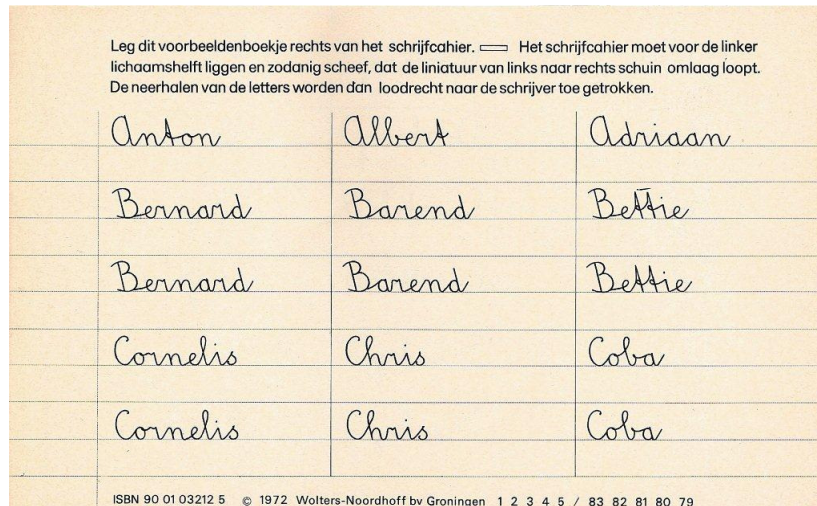 Leg dit voorbeeldenboekje rechts van het schrijfcahier. Het schrijfcahier moet voor de linker
lichaamshelft liggen en zodanig scheef, dat de liniatuur van links naar rechts schuin omlaag loopt.
De neerhalen van de letters worden dan loodrecht naar de schrijver toe getrokken.
Anton Albert Adriaan
Bernard Barend Bettie
Bernard Barend Bettie
Cornelis Chris Coba
Cornelis Chris Coba
ISBN 90 01 03212 5 © 1972 Wolters-Noordhoff bv Groningen 1 2 3 4 5 / 83 82 81 80 79